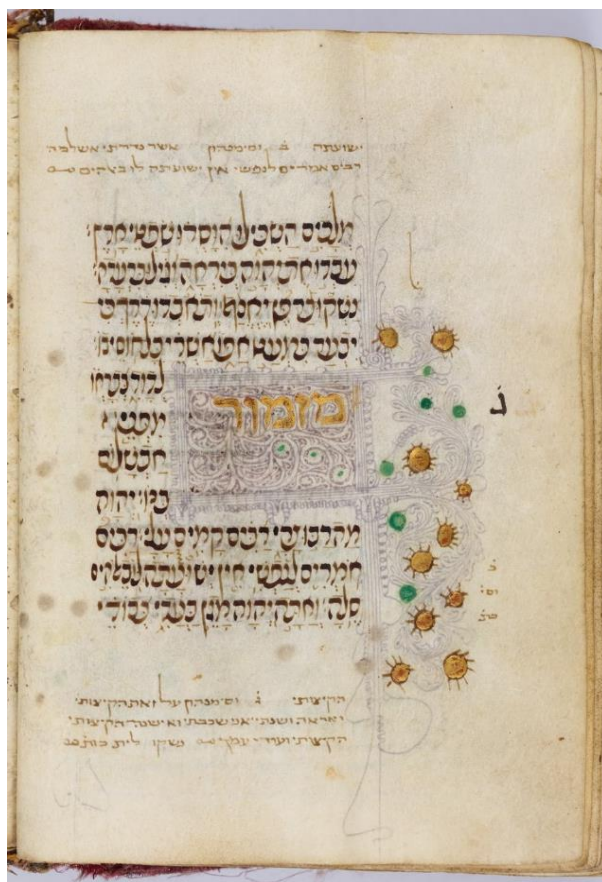 ישועתה ב וסימנהון אשר נדרתי אשלמה
רבים אמרים לנפשי אין ישועתה לו באלהים
מלכים השכילו הוסרו שפטי ארץ
עבדו את יהוה ביראה וגילו ברעדה
נשקו בר פן יאנף ותאבדו דרך כי
יבער כמעט אפו אשרי כל חוסי בו
מזמור לדוד בברחו
מפני א
אבשלם
בנו יהוה
מה רבו צרי רבים קמים עלי רבים
אמרים לנפשי אין ישועתה לו באלהים
סלה ואתה יהוה מגן בעדי כבודי
הקיצותי ג וסימנהון על זאת הקיצותי
ואראה ושנתי אני שכבתי ואישנה הקיצותי
הקיצותי ועודי עמך נשקו לית כות